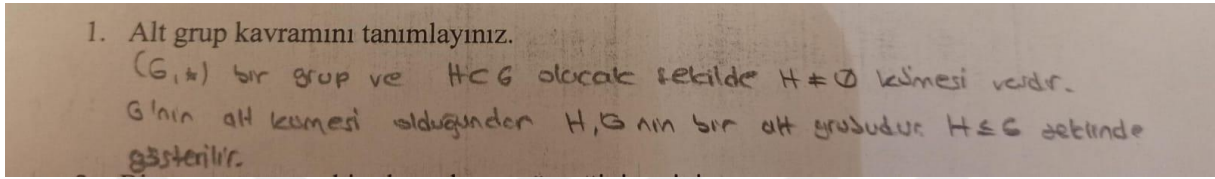 1. Alt grup kavramını tanımlayınız.
(G,*) bir grup ve H⊂G olacak şekilde H≠∅ kümesi vardır.
G'nin alt kümesi olduğundan H, G nin bir alt grubudur. H≤G şeklinde
gösterilir.